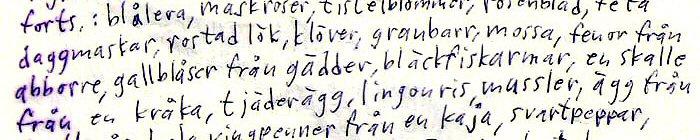 forts.: blålera, maskrosor, tistelblommor, rosenblad, feta
daggmaskar, rostad lök, klöver, granbarr, mossa, fenor från
abborre, gallblåsor från gäddor, bläckfiskarmar, en skalle
från en kråka, tjäderägg, lingonris, musslor, ägg från
vingpennor från en kaja, svartpeppar,